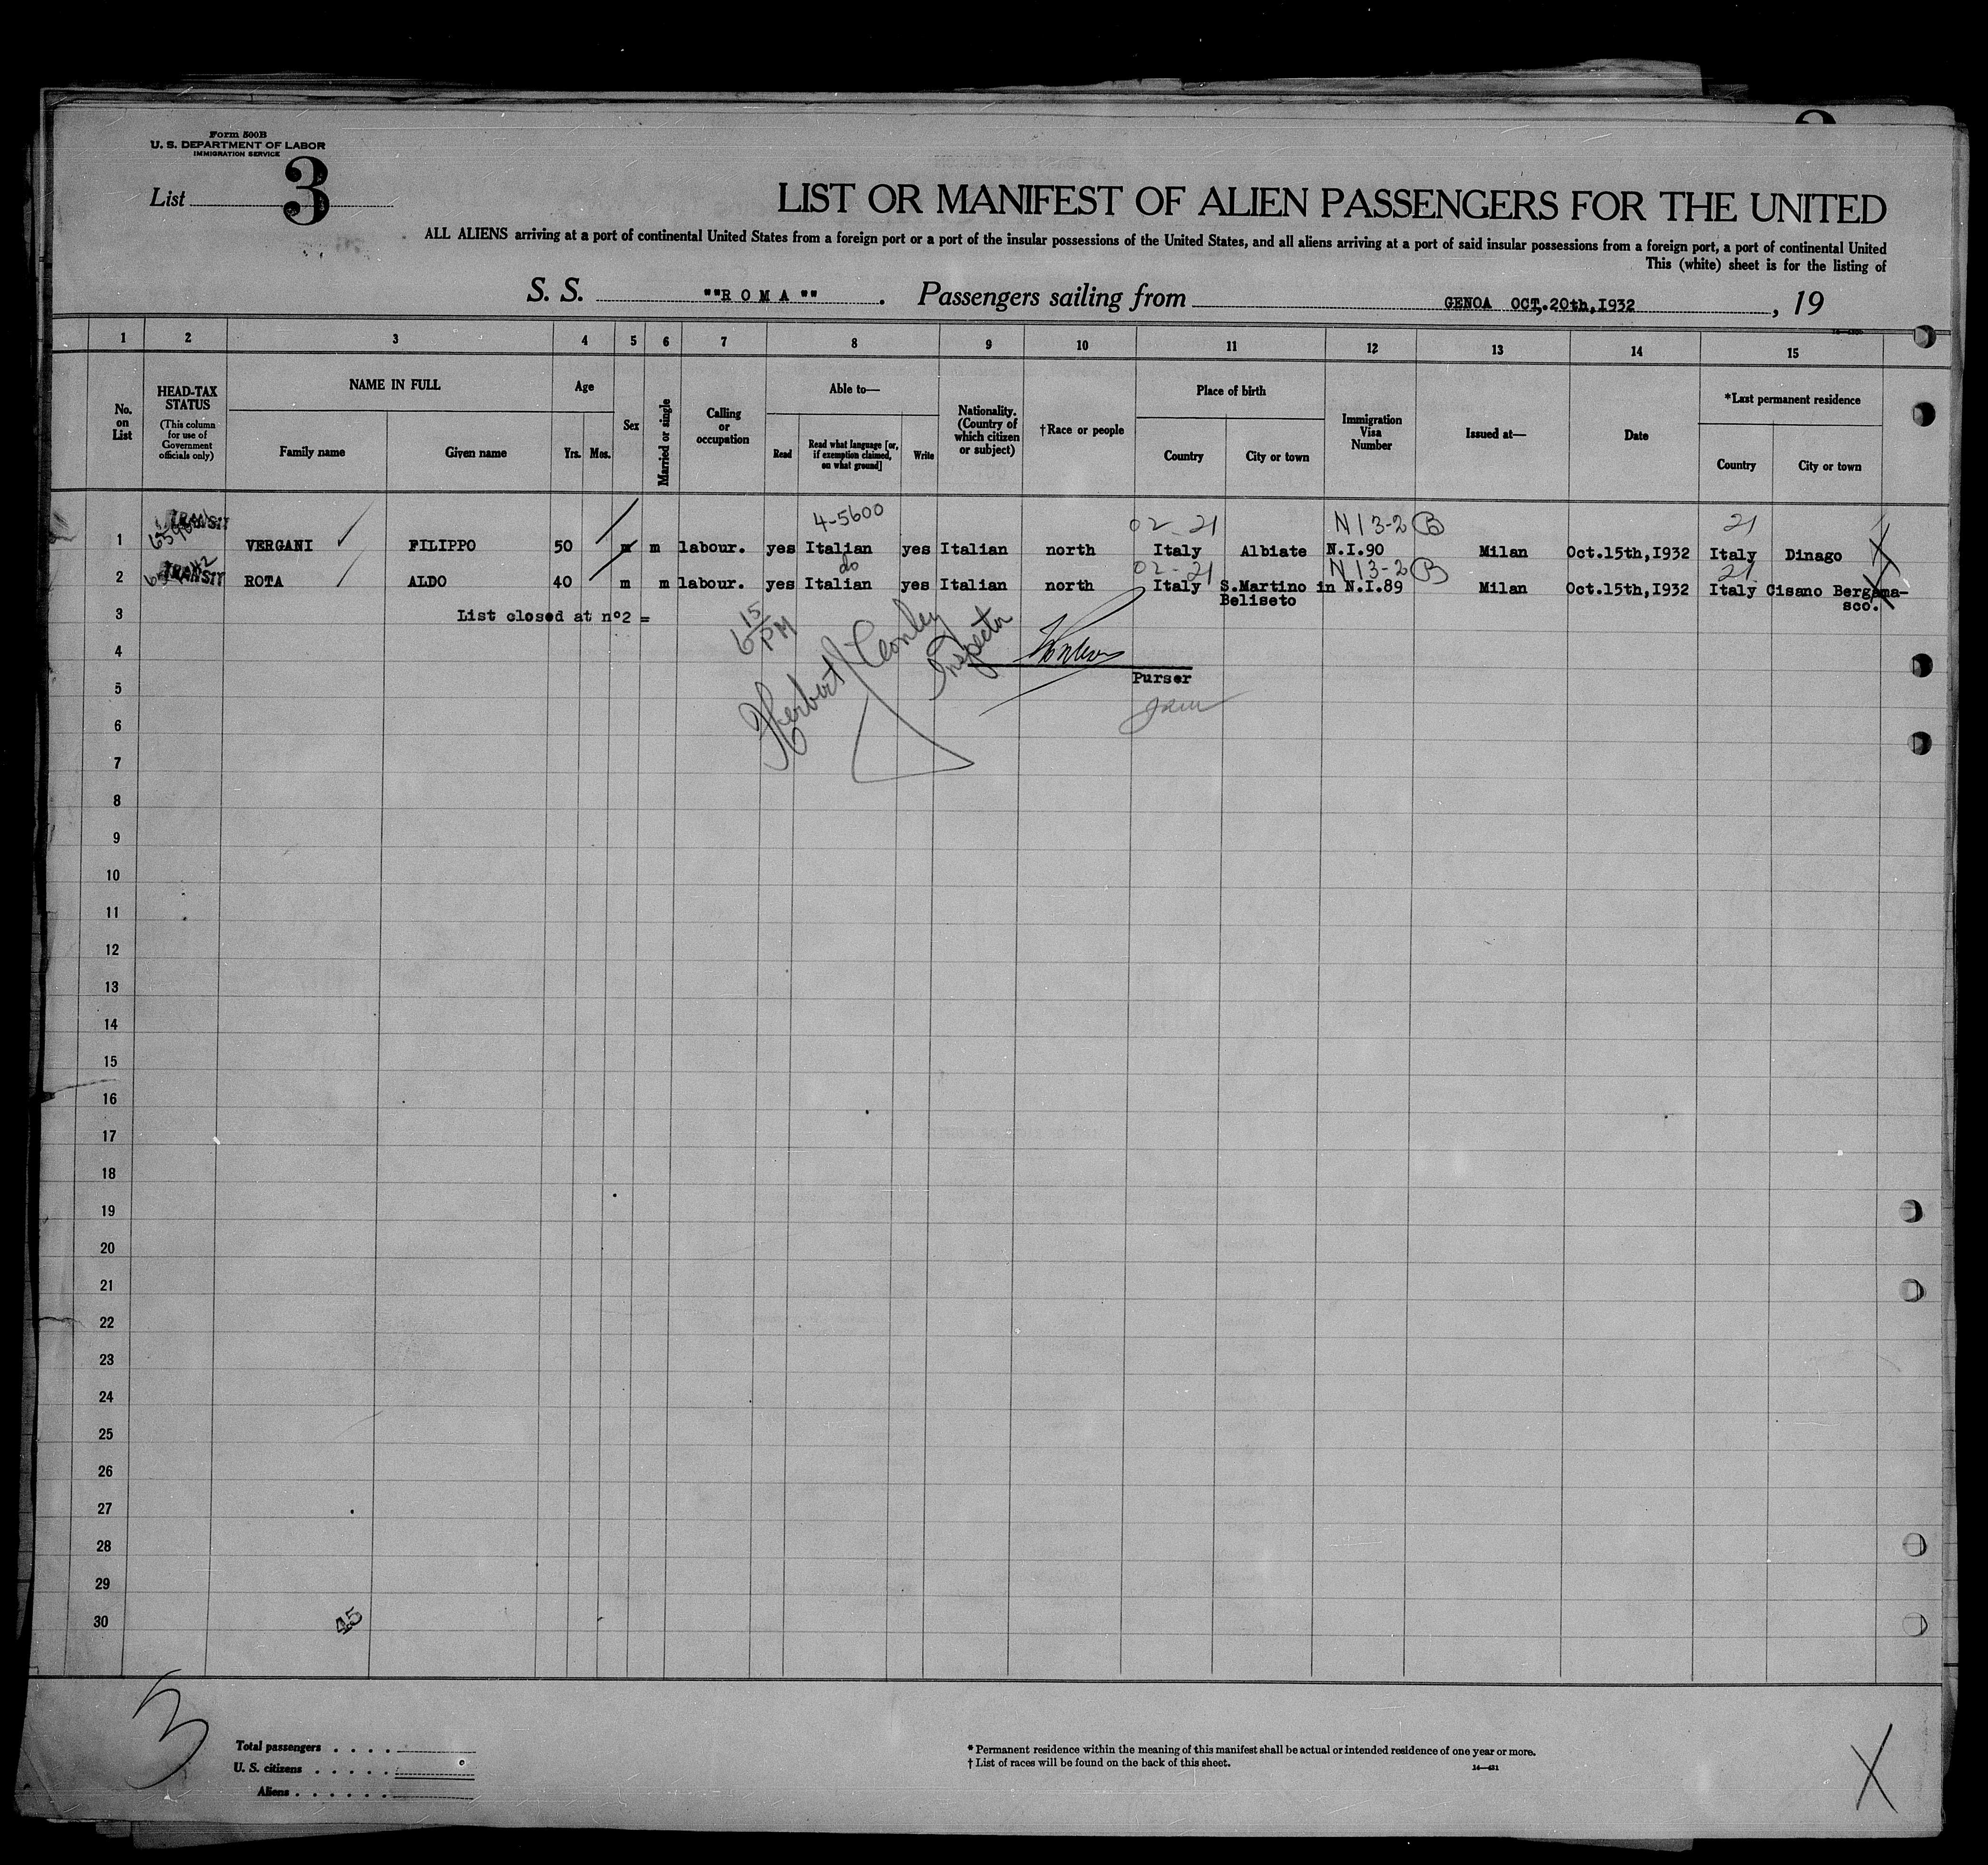 Form 500B
U. S. DEPARTMENT OF LABOR
IMMIGRATION SERVICE
List 3
LIST OR MANIFEST OF ALIEN PASSENGERS FOR THE UNITED
ALL ALIENS arriving at a port of continental United States from a foreign port or a port of the insular possessions of the United States, and all aliens arriving at a port of said insular possessions from a foreign port, a port of continental United
This (white) sheet is for the listing of
S. S. ""R O M A "" . Passengers sailing from GENOA OCT,.20th,I932 , 19
1 2 3 4 5 6 7 8 9 10 11 12 13 14 15
No. on List
HEAD-TAX STATUS
(This column for use of Government officials only)
NAME IN FULL
Family name Given name
Age
Yrs. Mos.
Sex
Married or single
Calling or occupation
Able to—
Read
Read what language [or, if exemption claimed, on what ground]
Write
Nationality. (Country of which citizen or subject)
†Race or people
Place of birth
Country City or town
Immigration Visa Number
Issued at—
Date
*Last permanent residence
Country City or town
TRANSIT 4-5600 02-21 N13-2 B 21
1 VERGANI FILIPPO 50 m m labour. yes Italian yes Italian north Italy Albiate N.I.90 Milan Oct.15th,I932 Italy Dinago
TRANSIT do 02-21 N13-2 B 21
2 ROTA ALDO 40 m m labour. yes Italian yes Italian north Italy S.Martino in N.I.89 Milan Oct.15th,I932 Italy Cisano Bergama-
Beliseto sco.
3 List closed at nº2 =
6 15 PM
Herbert Conley
Inspector
4
Purser
5
6
7
8
9
10
11
12
13
14
15
16
17
18
19
20
21
22
23
24
25
26
27
28
29
30
45
3
Total passengers . . . .
U. S. citizens . . . . .
Aliens . . . . . .
* Permanent residence within the meaning of this manifest shall be actual or intended residence of one year or more.
† List of races will be found on the back of this sheet.
14—431
X